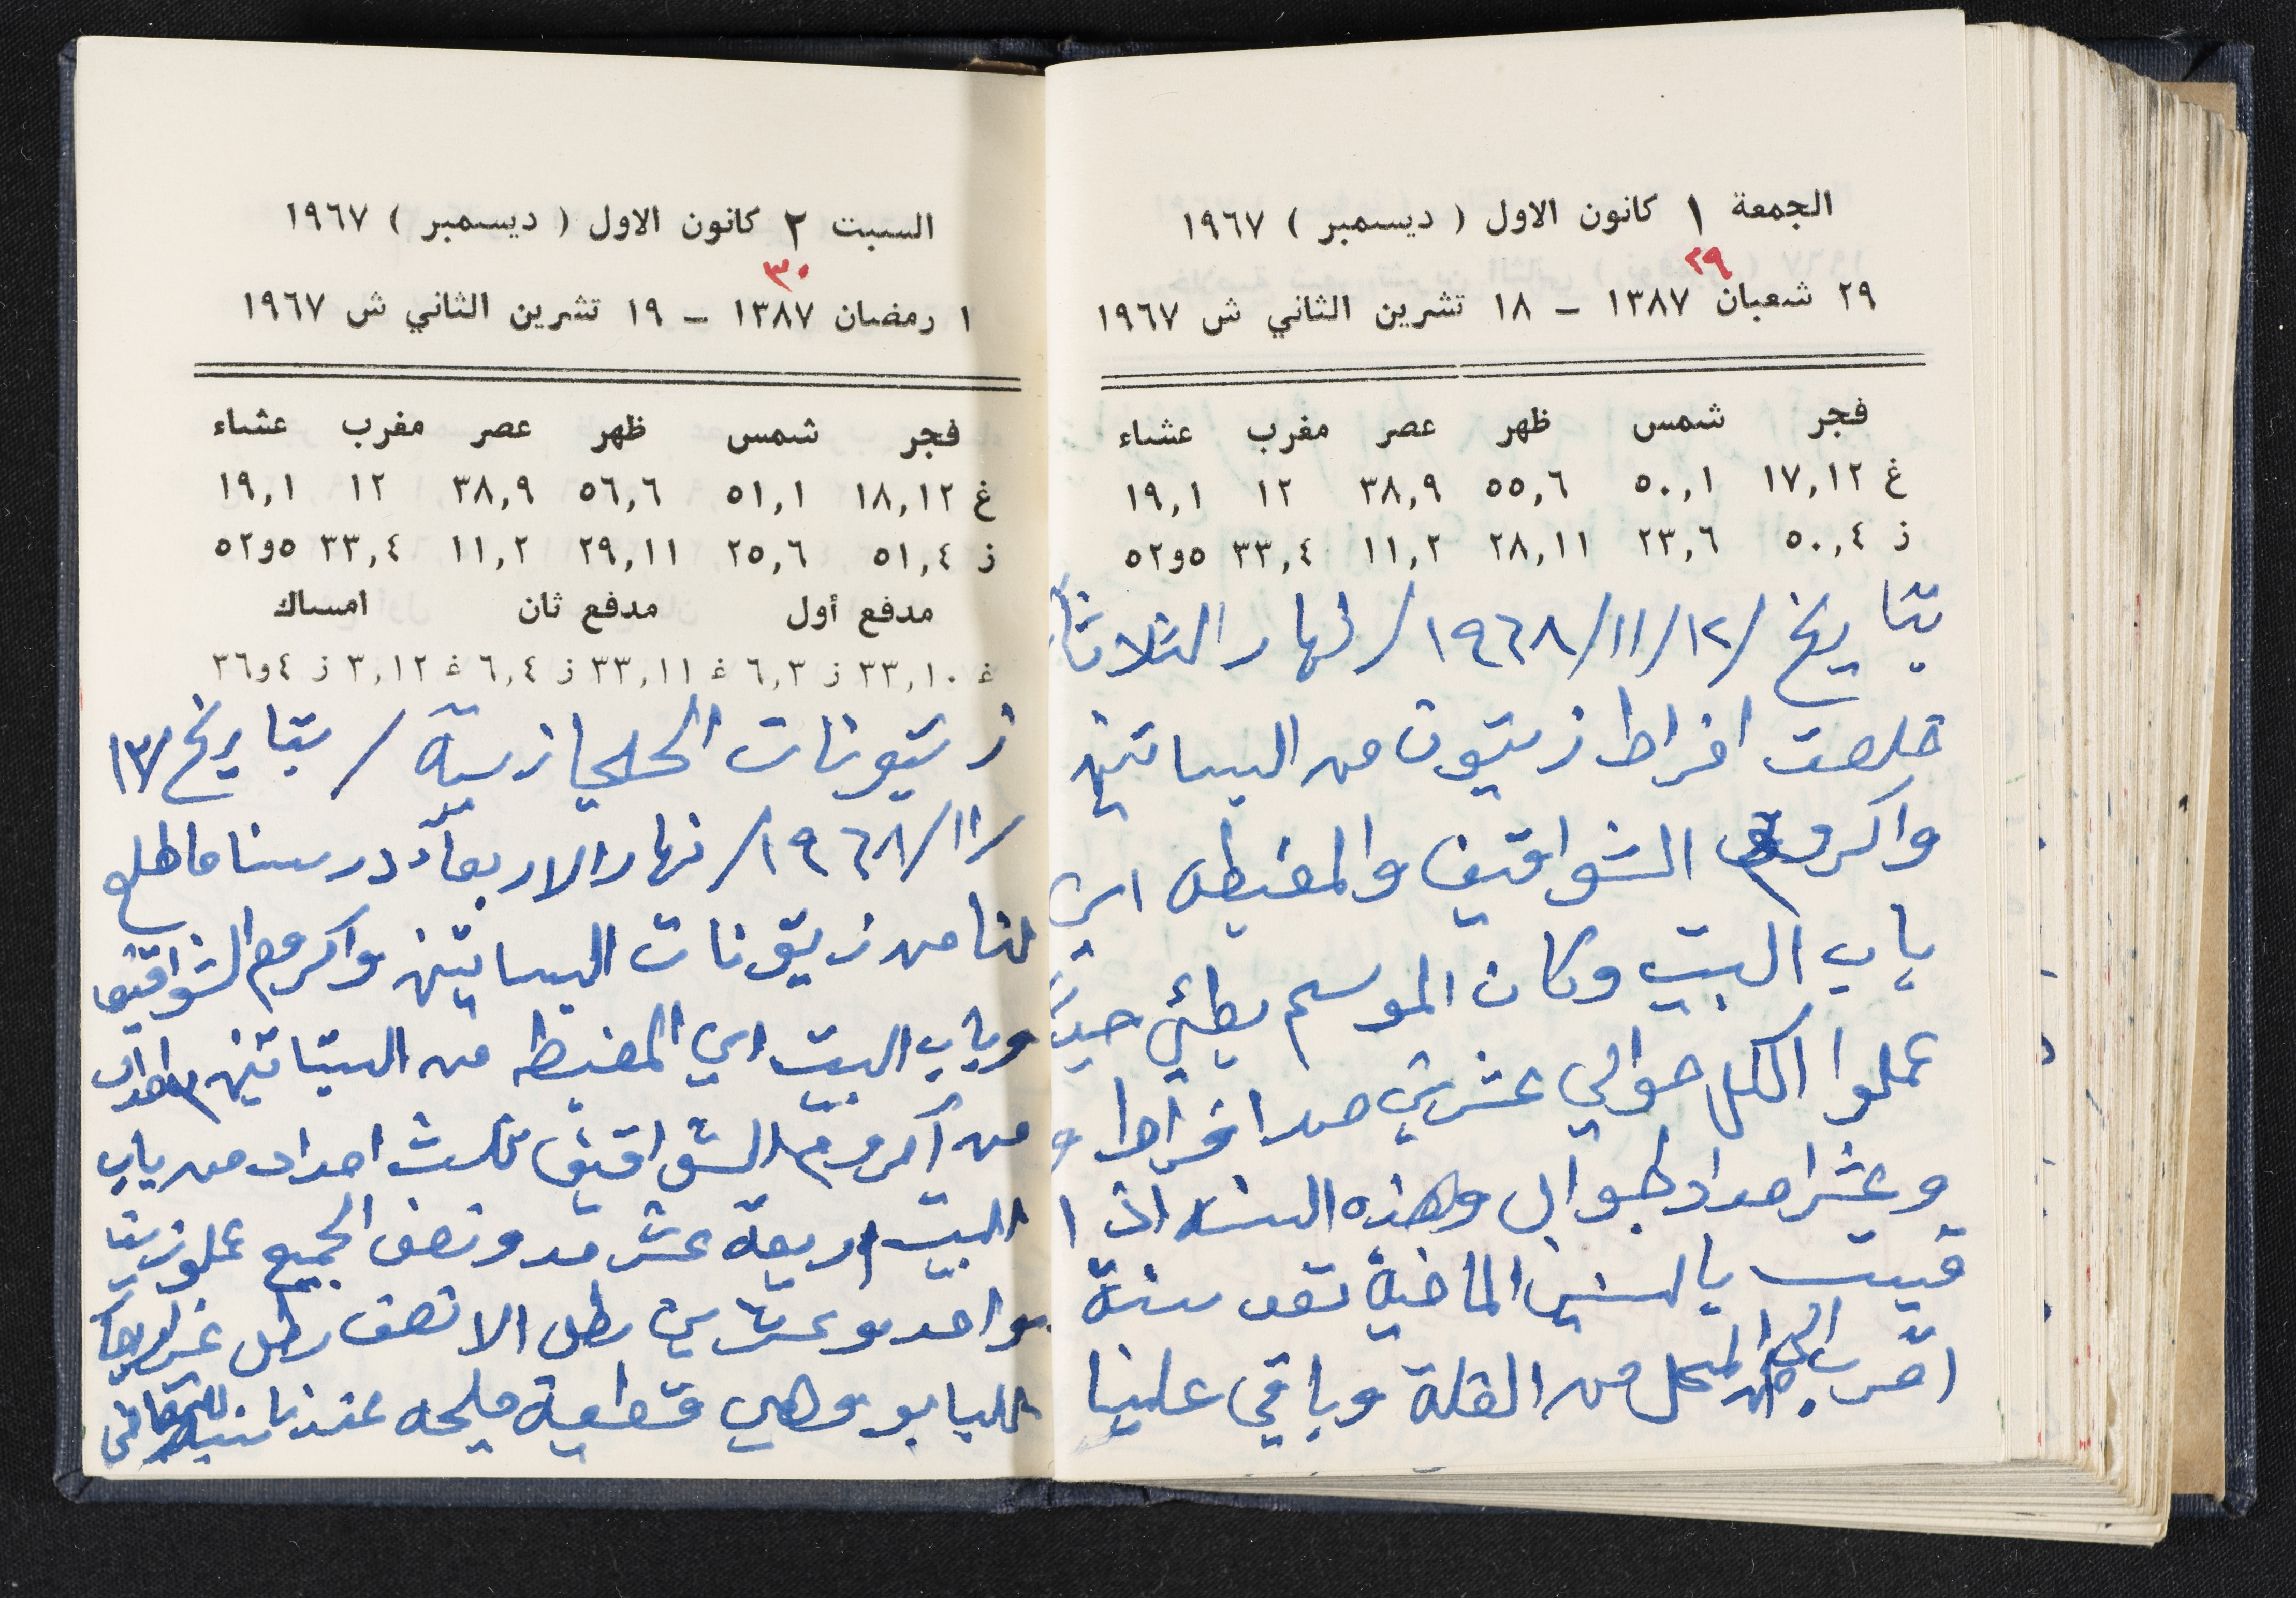 الجمعة ١ كانون الاول ( ديسمبر ) ١٩٦٧
٢٩
٢٩ شعبان ١٣٨٧ – ١٨ تشرين الثاني ش ١٩٦٧
فجر شمس ظهر عصر مغرب عشاء
غ ١٧,١٢ ٥٠,١ ٥٥,٦ ٣٨,٩ ١٢ ١٩,١
ز ٥٠,٤ ٢٣,٦ ٢٨,١١ ١١,٢ ٣٣,٤ ٥و٥٢
بتاريخ /١٢/١١/١٩٦٨/ نهار الثلاثاء
خلصت افراط زيتون من البساتين
واكروم الشواقيف والمغيطه اي
باب البيت وكان الموسم بطئي جيدً
عملوا الكل حوالي عشرين مد افراط و
وعشر امداد جوال وهذه السنه اذا
قيست بالسنين الماضية تعد سنة
اقرب الى المحل من الغلة وباقي علينا
السبت ٢ كانون الاول ( ديسمبر ) ١٩٦٧
٣٠
١ رمضان ١٣٨٧ – ١٩ تشرين الثاني ش ١٩٦٧
فجر شمس ظهر عصر مغرب عشاء
غ ١٨,١٢ ٥١,١ ٥٦,٦ ٣٨,٩ ١٢ ١٩,١
ز ٥١,٤ ٢٥,٦ ٢٩,١١ ١١,٢ ٣٣,٤ ٥و٥٢
مدفع أول مدفع ثان امساك
غ ٣٣,١٠ ز ٦,٣ غ ٣٣,١١ ز ٦,٤ غ ٣,١٢ ز ٤و٣٦
زيتونات / بتاريخ /١٣
/١١/١٩٦٨/ نهار الاربعآء درسنا ما طلع
لنا من زيتونات البساتين واكروم الشواقيف
وباب البيت اي المغيطه من البساتين امداد
من اكروم الشواقيف ثلاث امداد من باب
البيت اربعة عشر مد ونصف الجميع عملو زيت
واحد وعشرين رطل الا نصف رطل
للبابور وهي قطعية مليحه عندنا